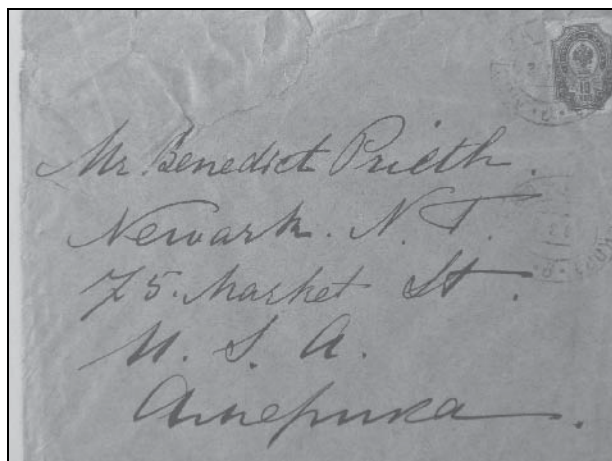 Mr. Benedict Prieth.
Newark. N. J.
75. Market St.
U. S. A.
Америка.